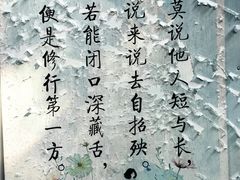 莫说他人短与长，
说来说去自招殃。
若能闭口深藏舌，
便是修行第一方。